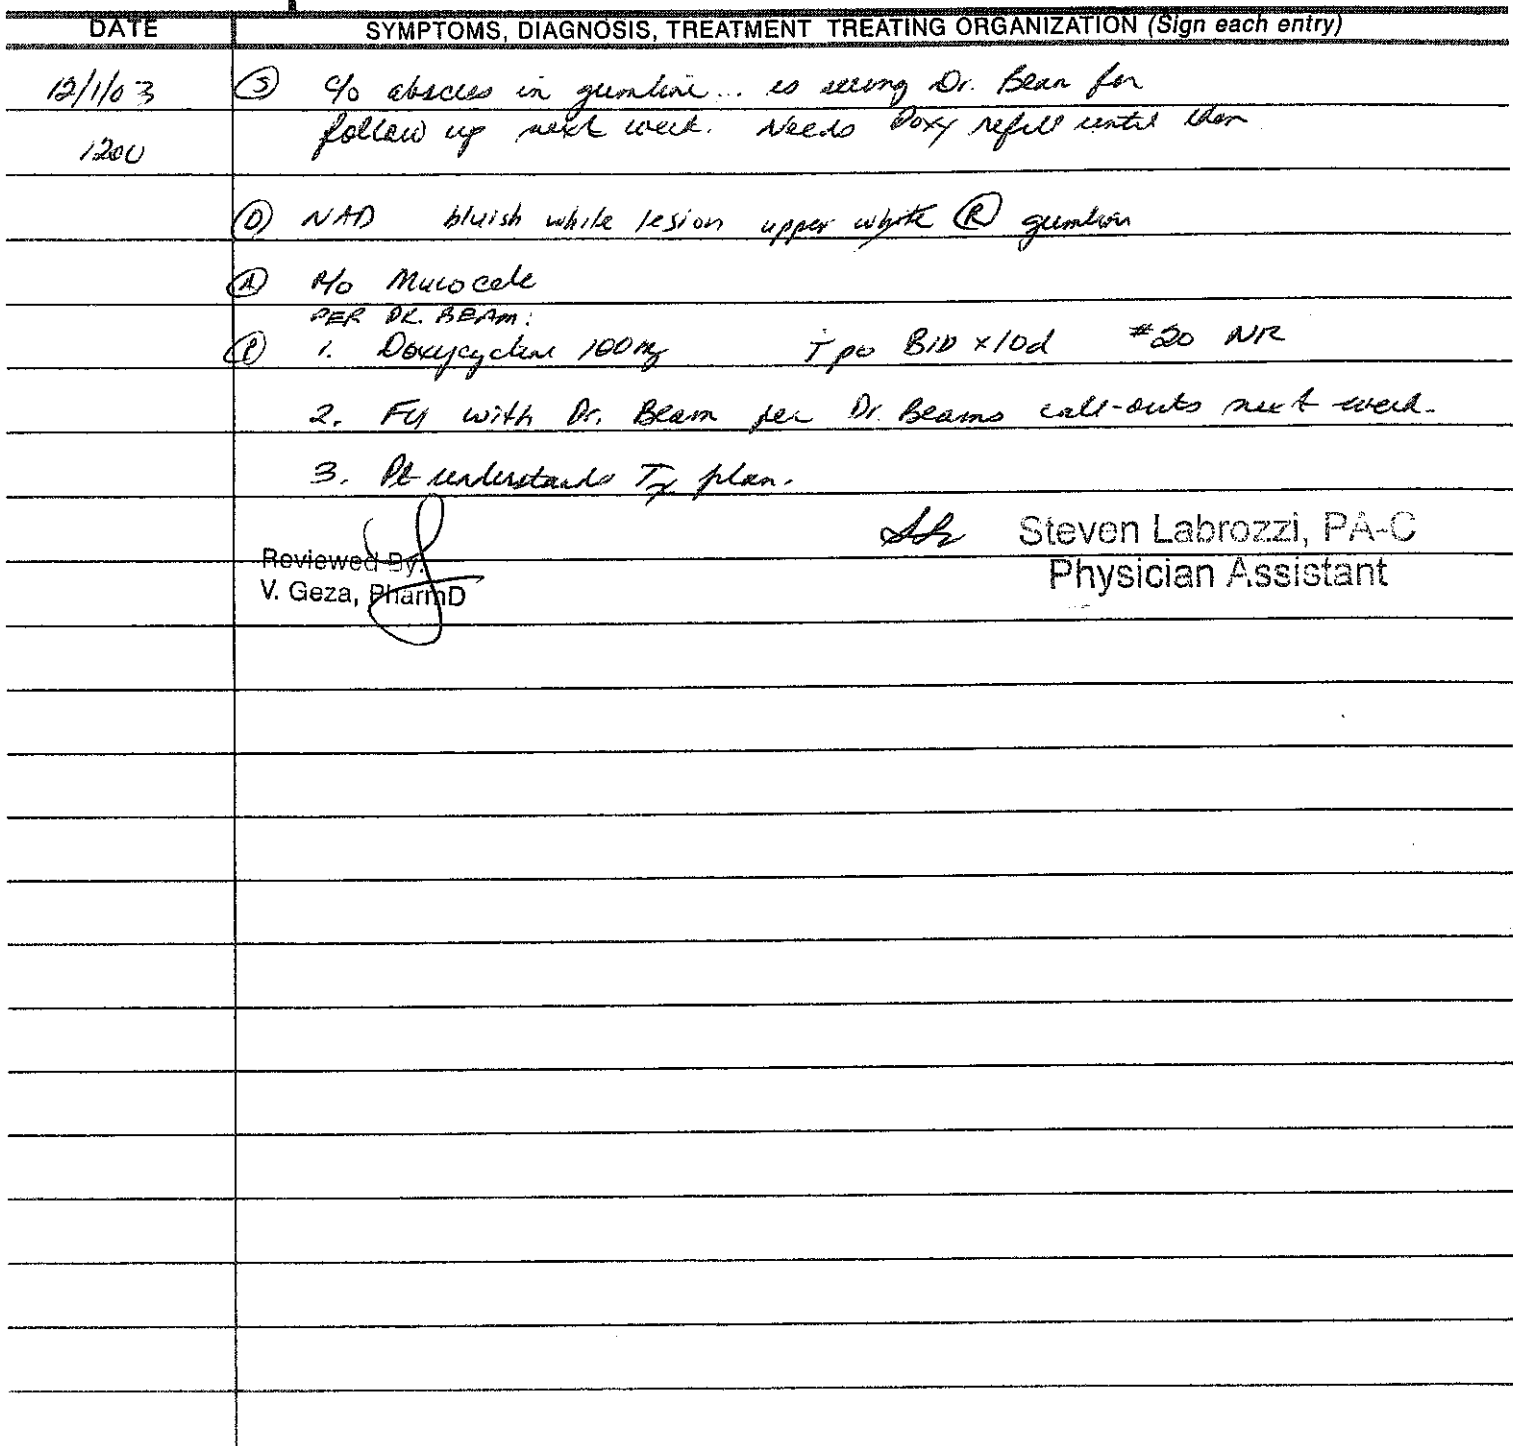 DATE SYMPTOMS, DIAGNOSIS, TREATMENT TREATING ORGANIZATION (Sign each entry)
12/1/03 (S) c/o abscess in gumline... is seeing Dr. Beam for
1200 follow up next week. Needs Doxy refill until then
(O) NAD bluish white lesion upper white (R) gumline
(A) R/o Mucocele
PER DR. BEAM:
(P) 1. Doxycycline 100mg i po BID x10d #20 NR
2. FU with Dr. Beam per Dr. Beams call-outs next week.
3. Pt understands Tx plan.
Steven Labrozzi, PA-C
Reviewed By:
Physician Assistant
V. Geza, PharmD